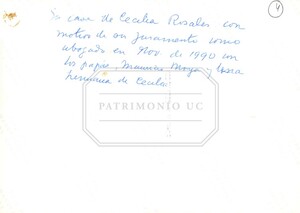 4
casa de Cecilia Rosales con
motivo de su juramento como
abogado en Nov. de 1990 con
los papás, Mauricio Moya y
hermana de Cecilia
PATRIMONIO UC